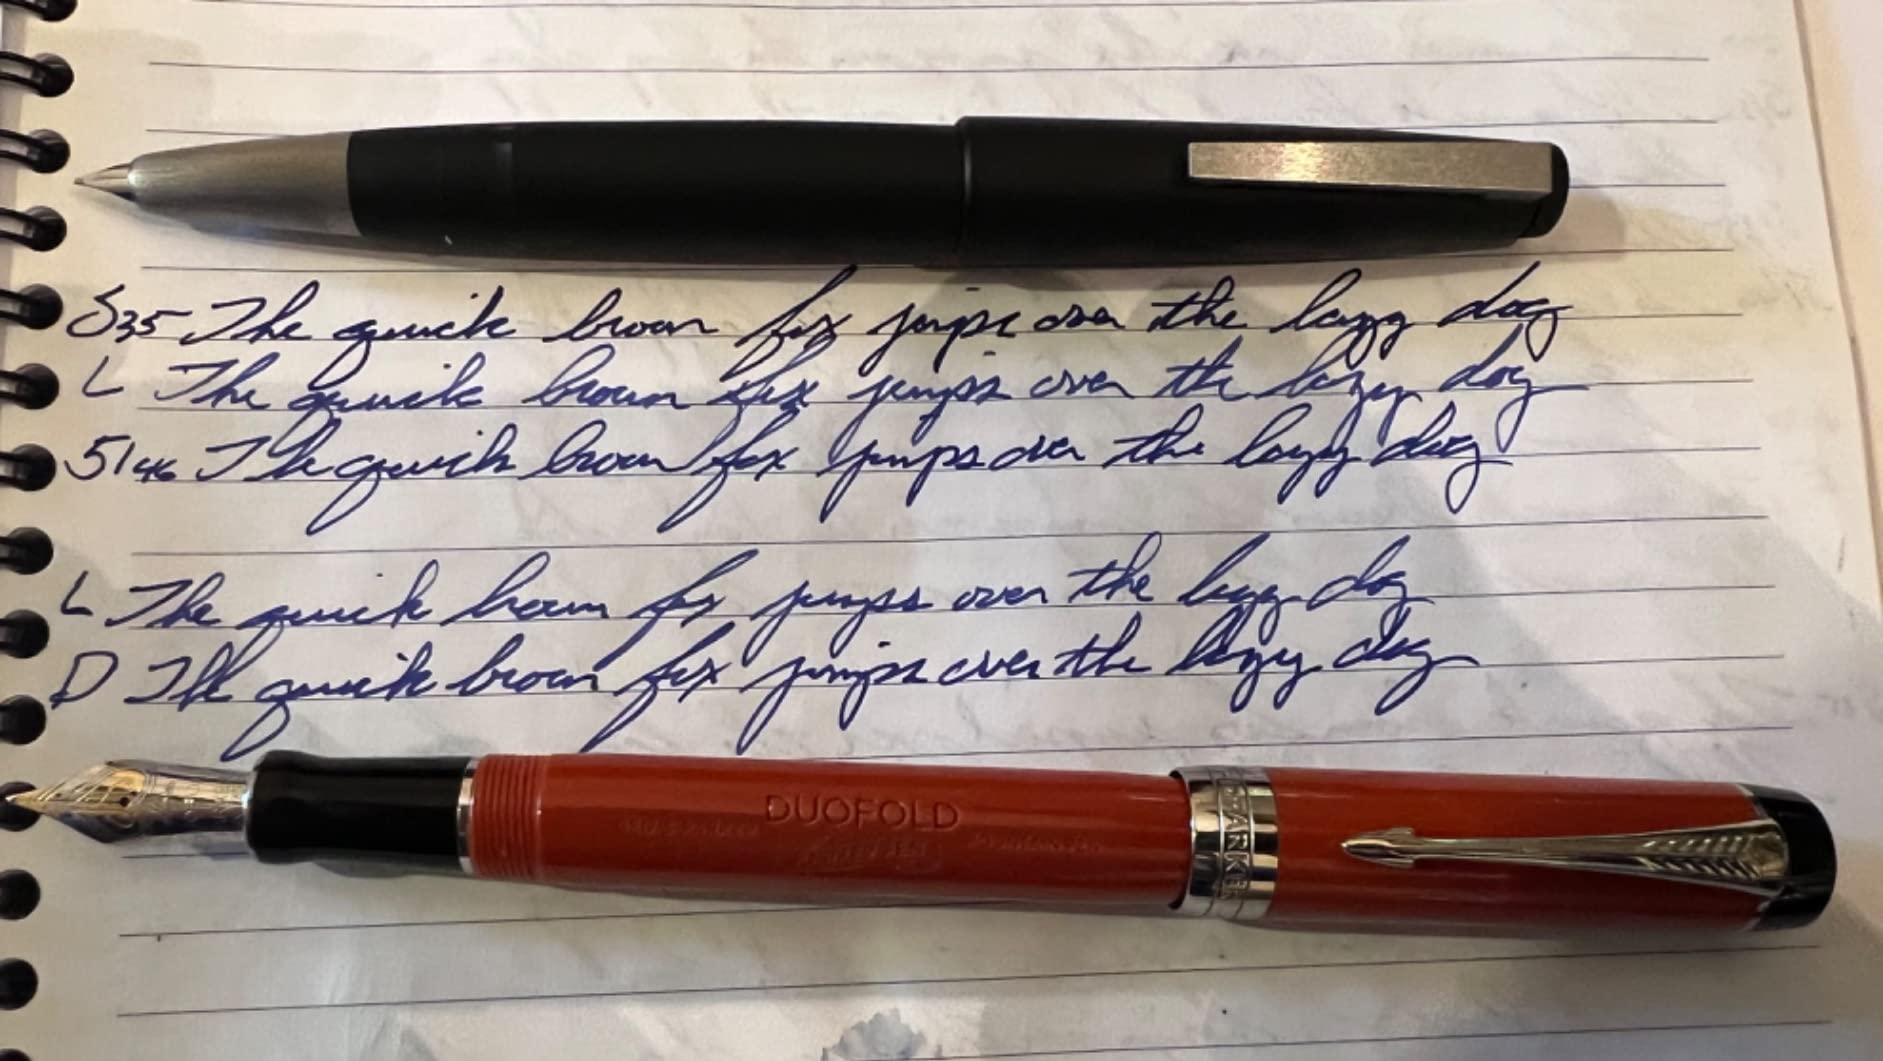 S35 The quick brown fox jumps over the lazy dog
L The quick brown fox jumps over the lazy dog
5146 The quick brown fox jumps over the lazy dog
L The quick brown fox jumps over the lazy dog
D The quick brown fox jumps over the lazy dog
DUOFOLD
PARKER